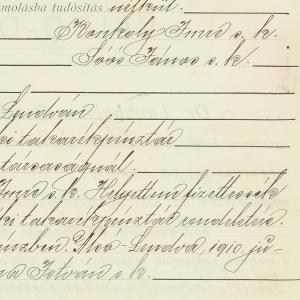 molásba tudósítás nélkül.
Konkoly Imre s. k.
Soós János s. k.
Lendván
ki takarékpénztár
társaságnál.
Imre s. k. Helyettem fizettessék
ki takarékpénztár rendeletére.
nzben. Alsó-Lendva, 1910 ju-
na István s. k.